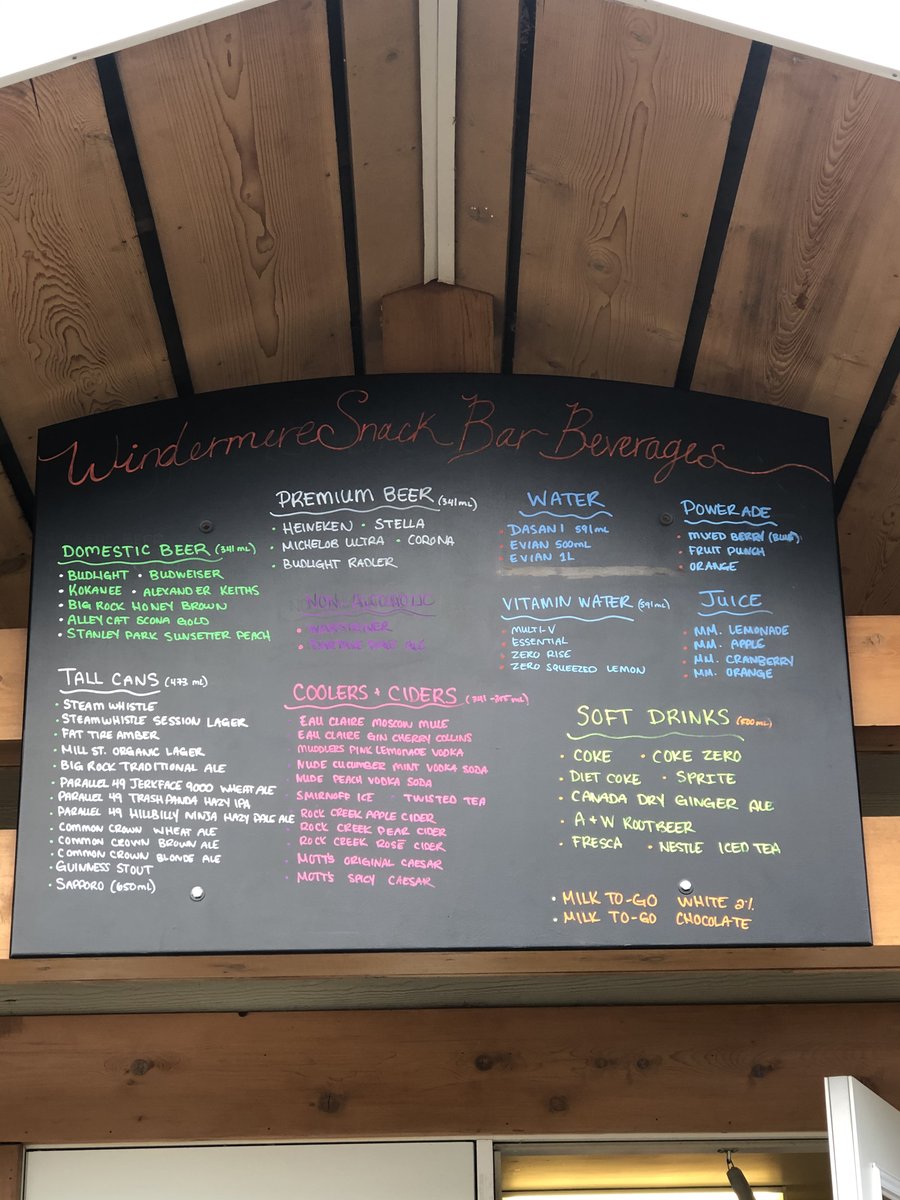 Windermere Snack Bar Beverages
DOMESTIC BEER (341 mL)
• BUDLIGHT • BUDWEISER
• KOKANEE • ALEXANDER KEITHS
• BIG ROCK HONEY BROWN
• ALLEY CAT SCONA GOLD
• STANLEY PARK SUNSETTER PEACH
TALL CANS (473 mL)
• STEAM WHISTLE
• STEAMWHISTLE SESSION LAGER
• FAT TIRE AMBER
• MILL ST. ORGANIC LAGER
• BIG ROCK TRADITIONAL ALE
• PARALLEL 49 JERKFACE 9000 WHEAT ALE
• PARALLEL 49 TRASH PANDA HAZY IPA
• PARALLEL 49 HILLBILLY NINJA HAZY PALE ALE
• COMMON CROWN WHEAT ALE
• COMMON CROWN BROWN ALE
• COMMON CROWN BLONDE ALE
• GUINNESS STOUT
• SAPPORO (650 mL)
PREMIUM BEER (341 mL)
• HEINEKEN • STELLA
• MICHELOB ULTRA • CORONA
• BUDLIGHT RADLER
NON-ALCOHOLIC
COOLERS + CIDERS (341-355 mL)
EAU CLAIRE MOSCOW MULE
EAU CLAIRE GIN CHERRY COLLINS
MUDDLERS PINK LEMONADE VODKA
NUDE CUCUMBER MINT VODKA SODA
NUDE PEACH VODKA SODA
SMIRNOFF ICE • TWISTED TEA
ROCK CREEK APPLE CIDER
ROCK CREEK PEAR CIDER
ROCK CREEK ROSE CIDER
MOTT'S ORIGINAL CAESAR
MOTT'S SPICY CAESAR
WATER
• DASANI 591mL
• EVIAN 500mL
• EVIAN 1L
VITAMIN WATER (591mL)
• MULTI-V
• ESSENTIAL
• ZERO RISE
• ZERO SQUEEZED LEMON
POWERADE
• MIXED BERRY (BLUE)
• FRUIT PUNCH
• ORANGE
JUICE
• MM. LEMONADE
• MM. APPLE
• MM. CRANBERRY
• MM. ORANGE
SOFT DRINKS (500mL)
• COKE • COKE ZERO
• DIET COKE • SPRITE
• CANADA DRY GINGER ALE
• A + W ROOTBEER
• FRESCA • NESTLE ICED TEA
• MILK TO-GO WHITE 2%
• MILK TO-GO CHOCOLATE